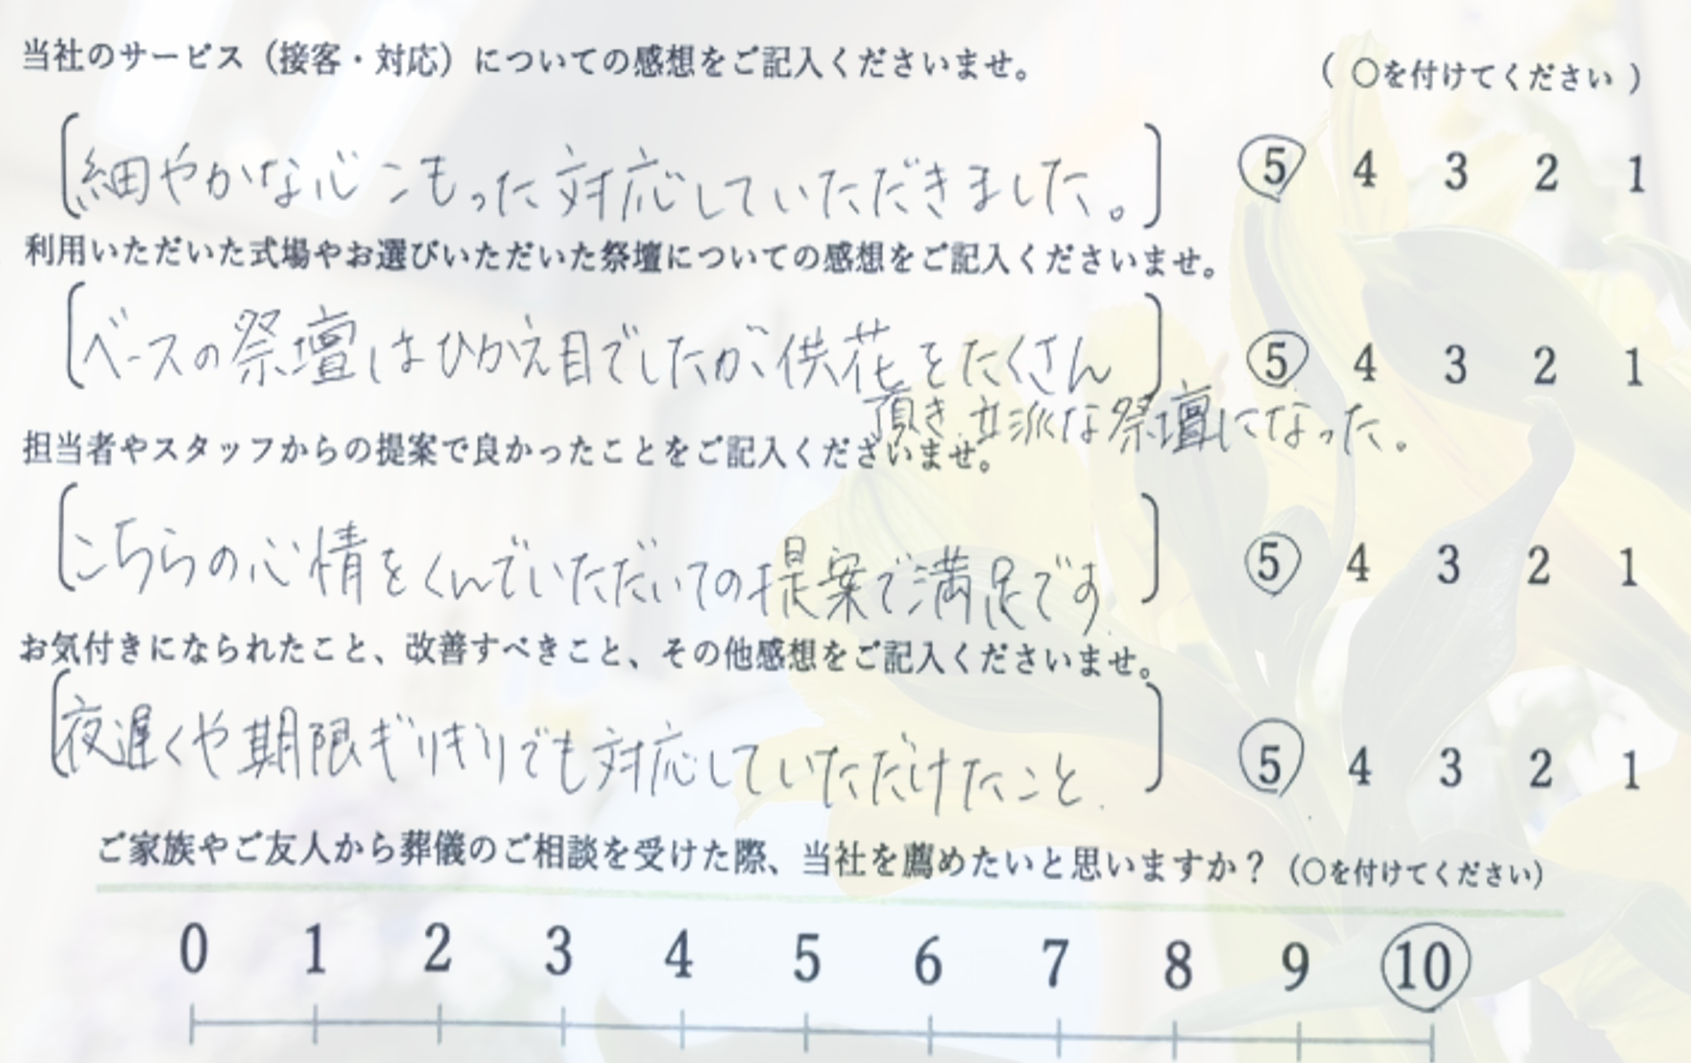 当社のサービス（接客・対応）についての感想をご記入くださいませ。
（ ○を付けてください ）
細やかな心こもった対応していただきました。
5 4 3 2 1
利用いただいた式場やお選びいただいた祭壇についての感想をご記入くださいませ。
ベースの祭壇はひかえ目でしたが、供花をたくさん
5 4 3 2 1
頂き、立派な祭壇になった。
担当者やスタッフからの提案で良かったことをご記入くださいませ。
こちらの心情をくんでいただいての提案で満足です.
5 4 3 2 1
お気付きになられたこと、改善すべきこと、その他感想をご記入くださいませ。
夜遅くや期限ぎりぎりでも対応していただけたこと.
5 4 3 2 1
ご家族やご友人から葬儀のご相談を受けた際、当社を薦めたいと思いますか？（○を付けてください）
0 1 2 3 4 5 6 7 8 9 10